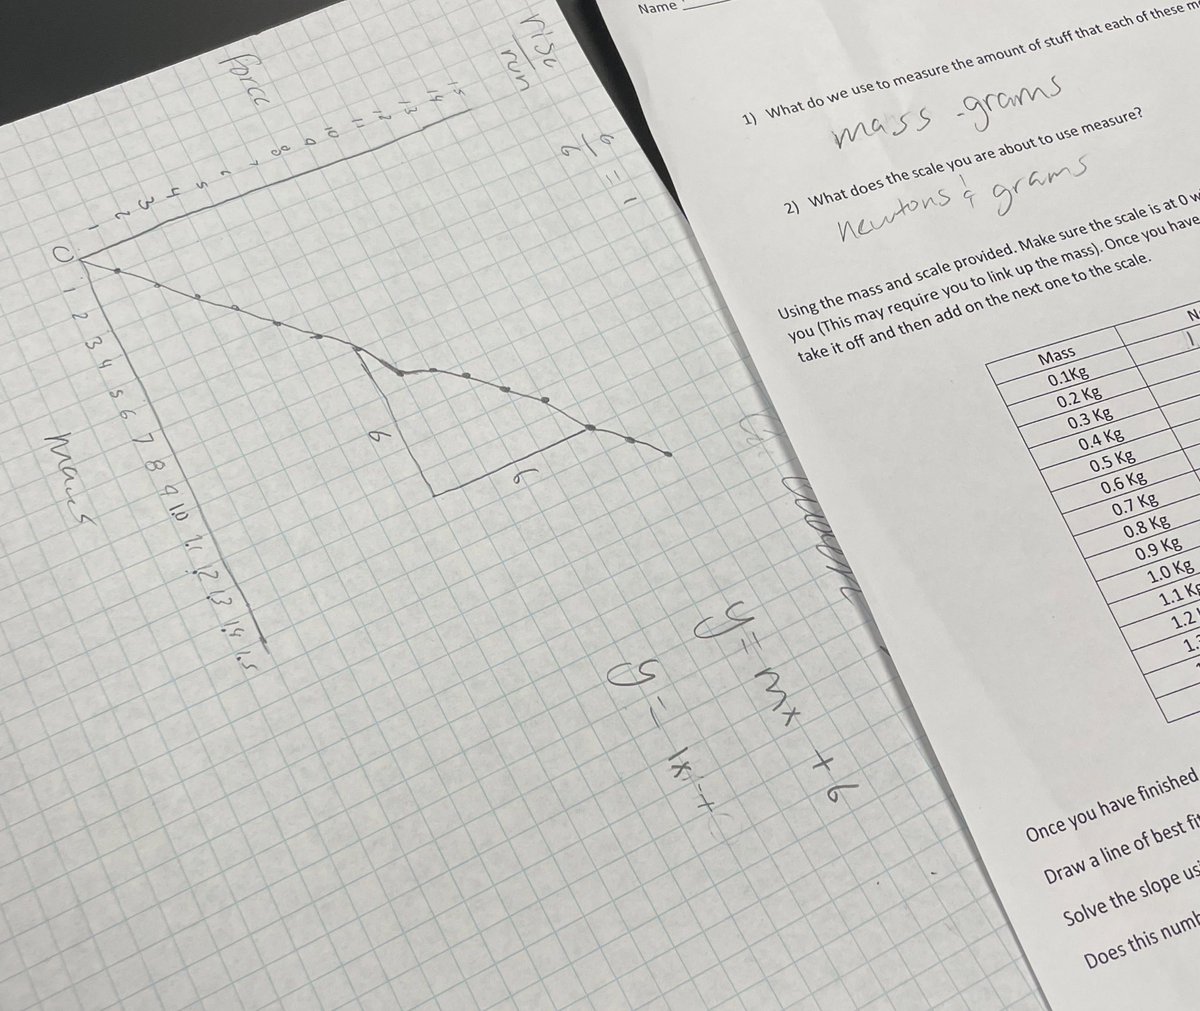 rise
run
6/6 = 1
force
15
14
13
12
11
10
9
8
7
6
5
4
3
2
1
0
1 2 3 4 5 6 7 8 9 1.0 1.1 1.2 1.3 1.4 1.5
6
6
y = mx + b
y = 1x +
Name
1) What do we use to measure the amount of stuff that each of these
mass - grams
2) What does the scale you are about to use measure?
newtons & grams
Using the mass and scale provided. Make sure the scale is at 0
you (This may require you to link up the mass). Once you have
take it off and then add on the next one to the scale.
Mass N
0.1Kg 1
0.2 Kg
0.3 Kg
0.4 Kg
0.5 Kg
0.6 Kg
0.7 Kg
0.8 Kg
0.9 Kg
1.0 Kg
1.1 Kg
1.2
1.
Once you have finished
Draw a line of best fit
Solve the slope
Does this